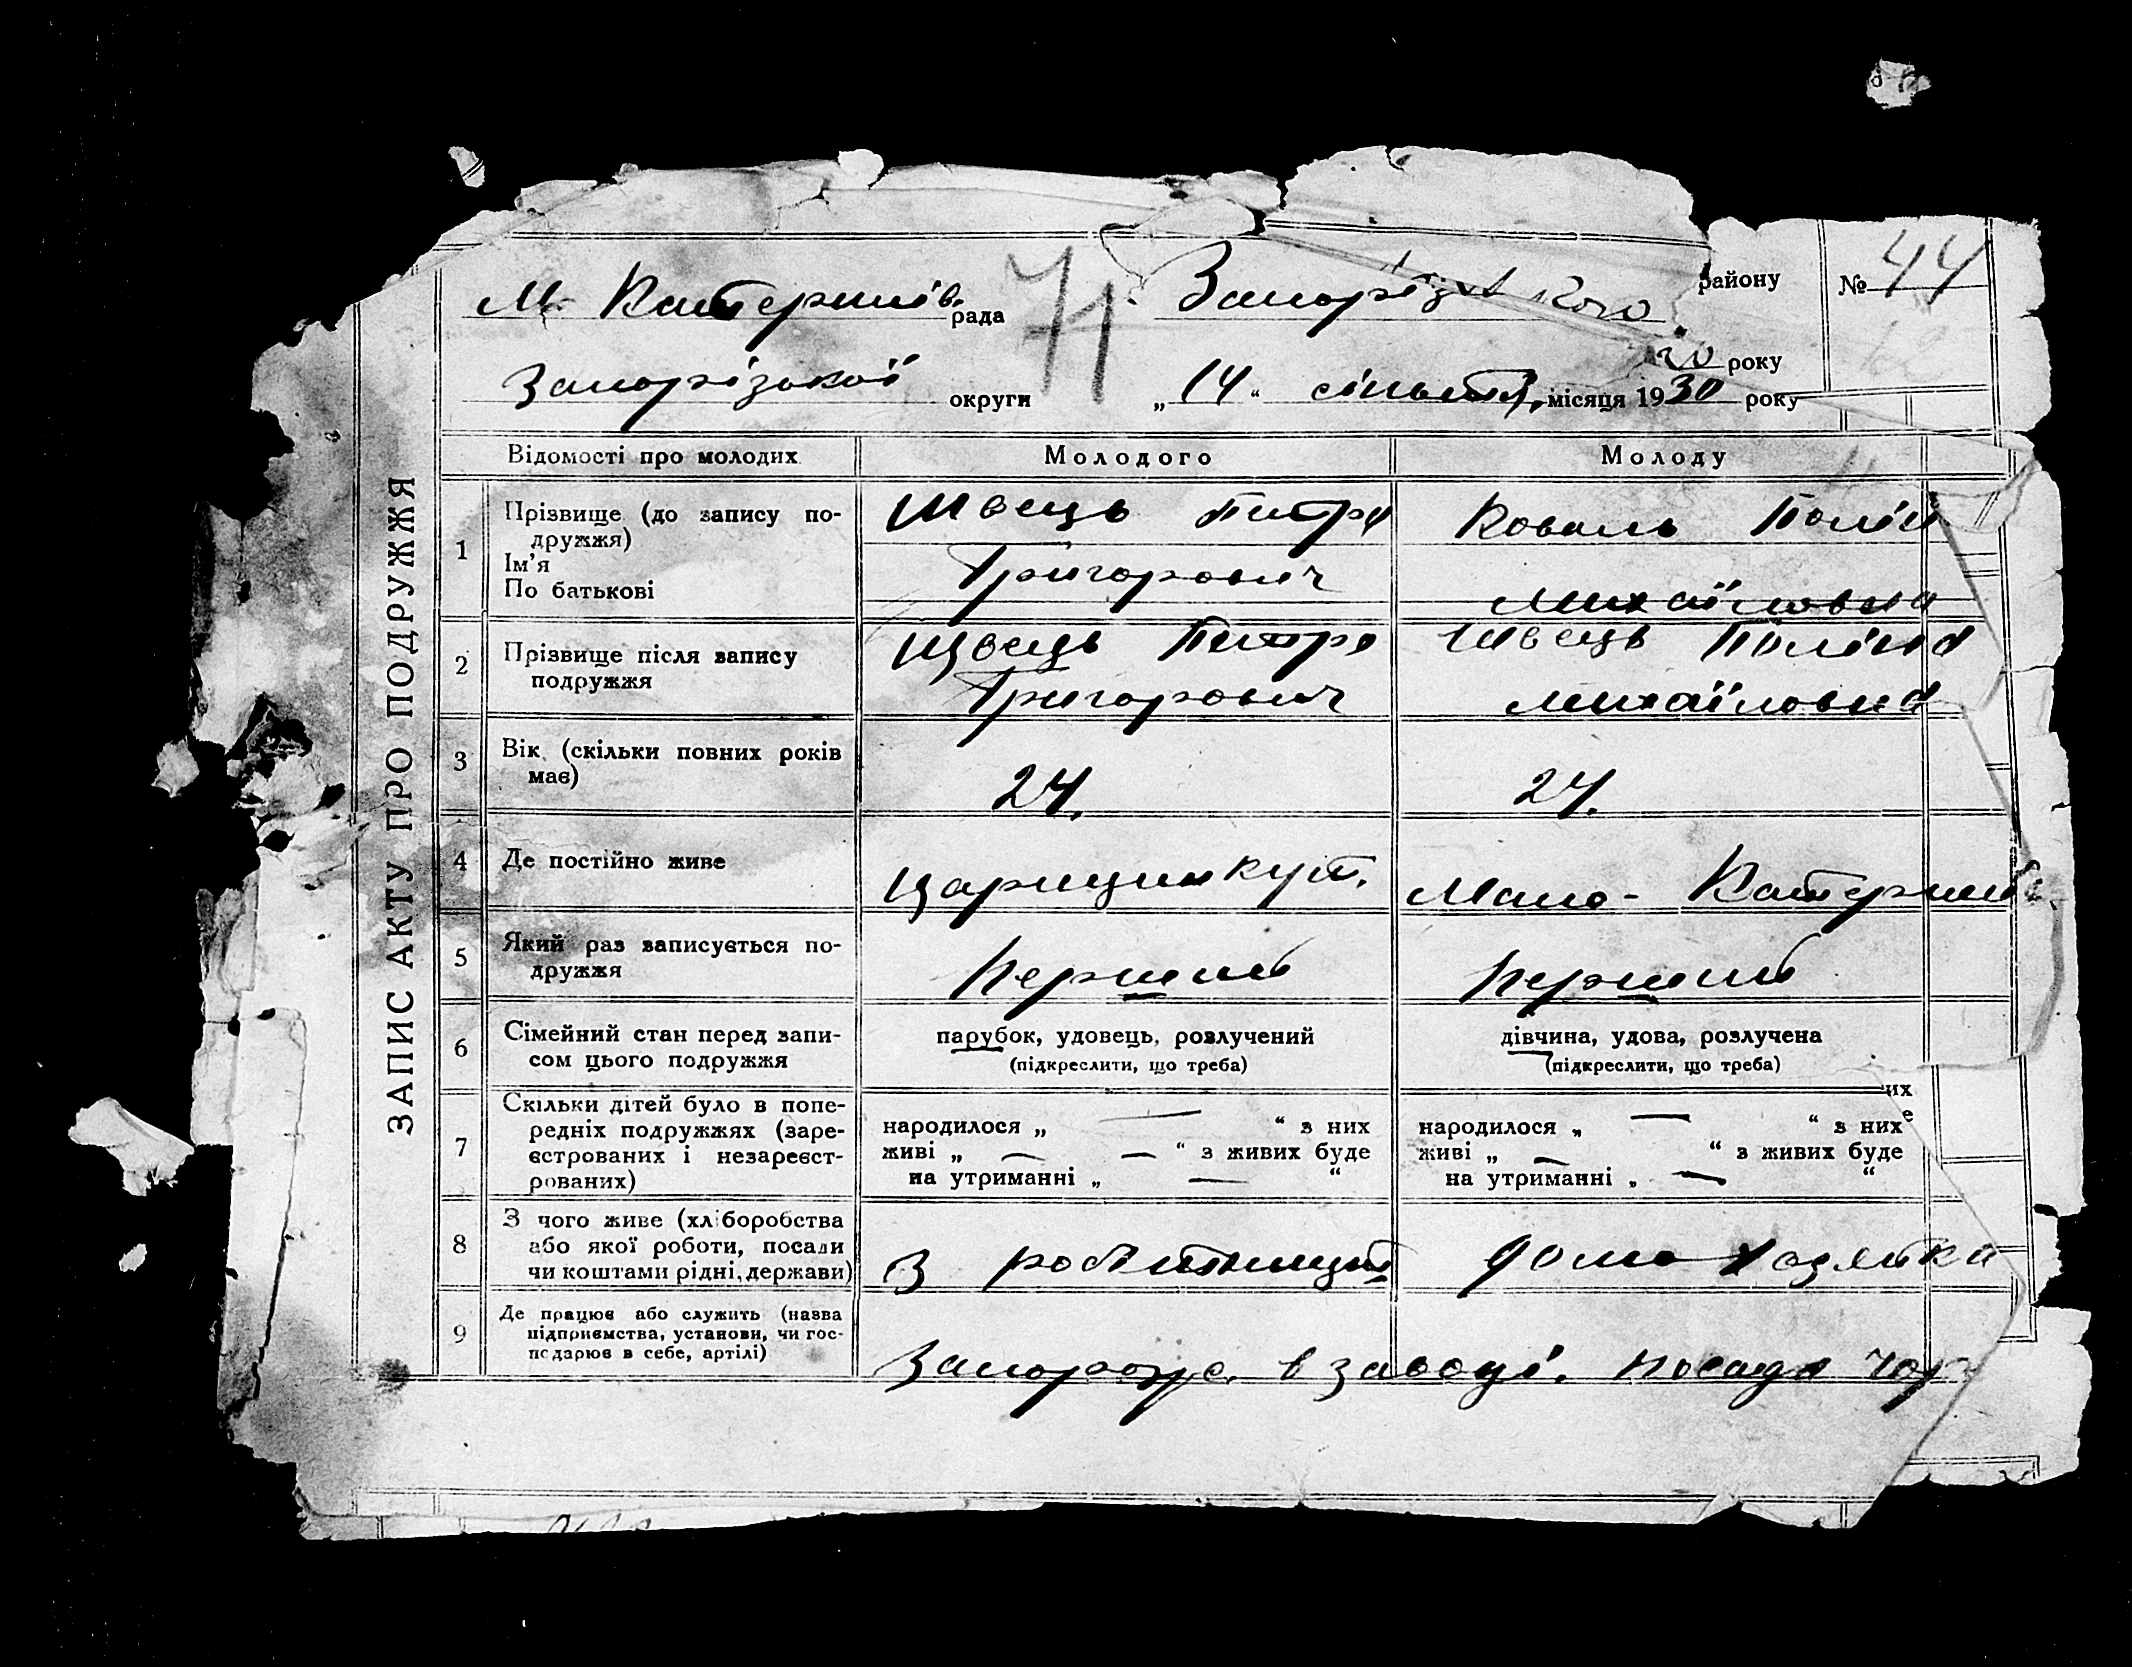 ЗАПИС АКТУ ПРО ПОДРУЖЖЯ
М. Катеринів. рада 71 Запорізького району № 44
20 року
Запорізької округи „ 14 “ сіньтя, місяця 1930 року
Відомості про молодих Молодого Молоду
1 Прізвище (до запису по-
дружжя)
Ім’я
По батькові
Швець Питро
Григорович
Коваль Полін
Михайловна
2 Прізвище після запису
подружжя
Швець Питро
Григорович
Швець Поліна
Михайловна
3 Вік (скільки повних років
має)
24. 24.
4 Де постійно живе Царицин кут. Мало- Катеринів
5 Який раз записується по-
дружжя
перший перший
6 Сімейний стан перед запи-
сом цього подружжя
парубок, удовець, розлучений
(підкреслити, що треба)
дівчина, удова, розлучена
(підкреслити, що треба)
7 Скільки дітей було в попе-
редніх подружжях (заре-
єстрованих і незареєст-
рованих)
народилося „ — “ з них
живі „ — — “ з живих буде
на утриманні „ — “
их
е
народилося „ — “ з них
живі „ — “ з живих буде
на утриманні „ — “
8 З чого живе (хліборобства
або якої роботи, посади
чи коштами рідні, держави)
З робітниці домохозяйка
9 Де працює або служить (назва
підприємства, установи, чи гос-
подарює в себе, артілі)
в заводі. посада